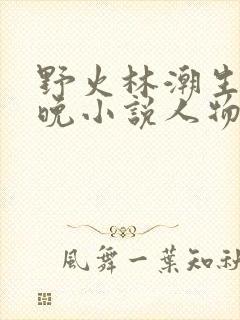 野火林潮生
晚小說人物
風舞一葉知秋